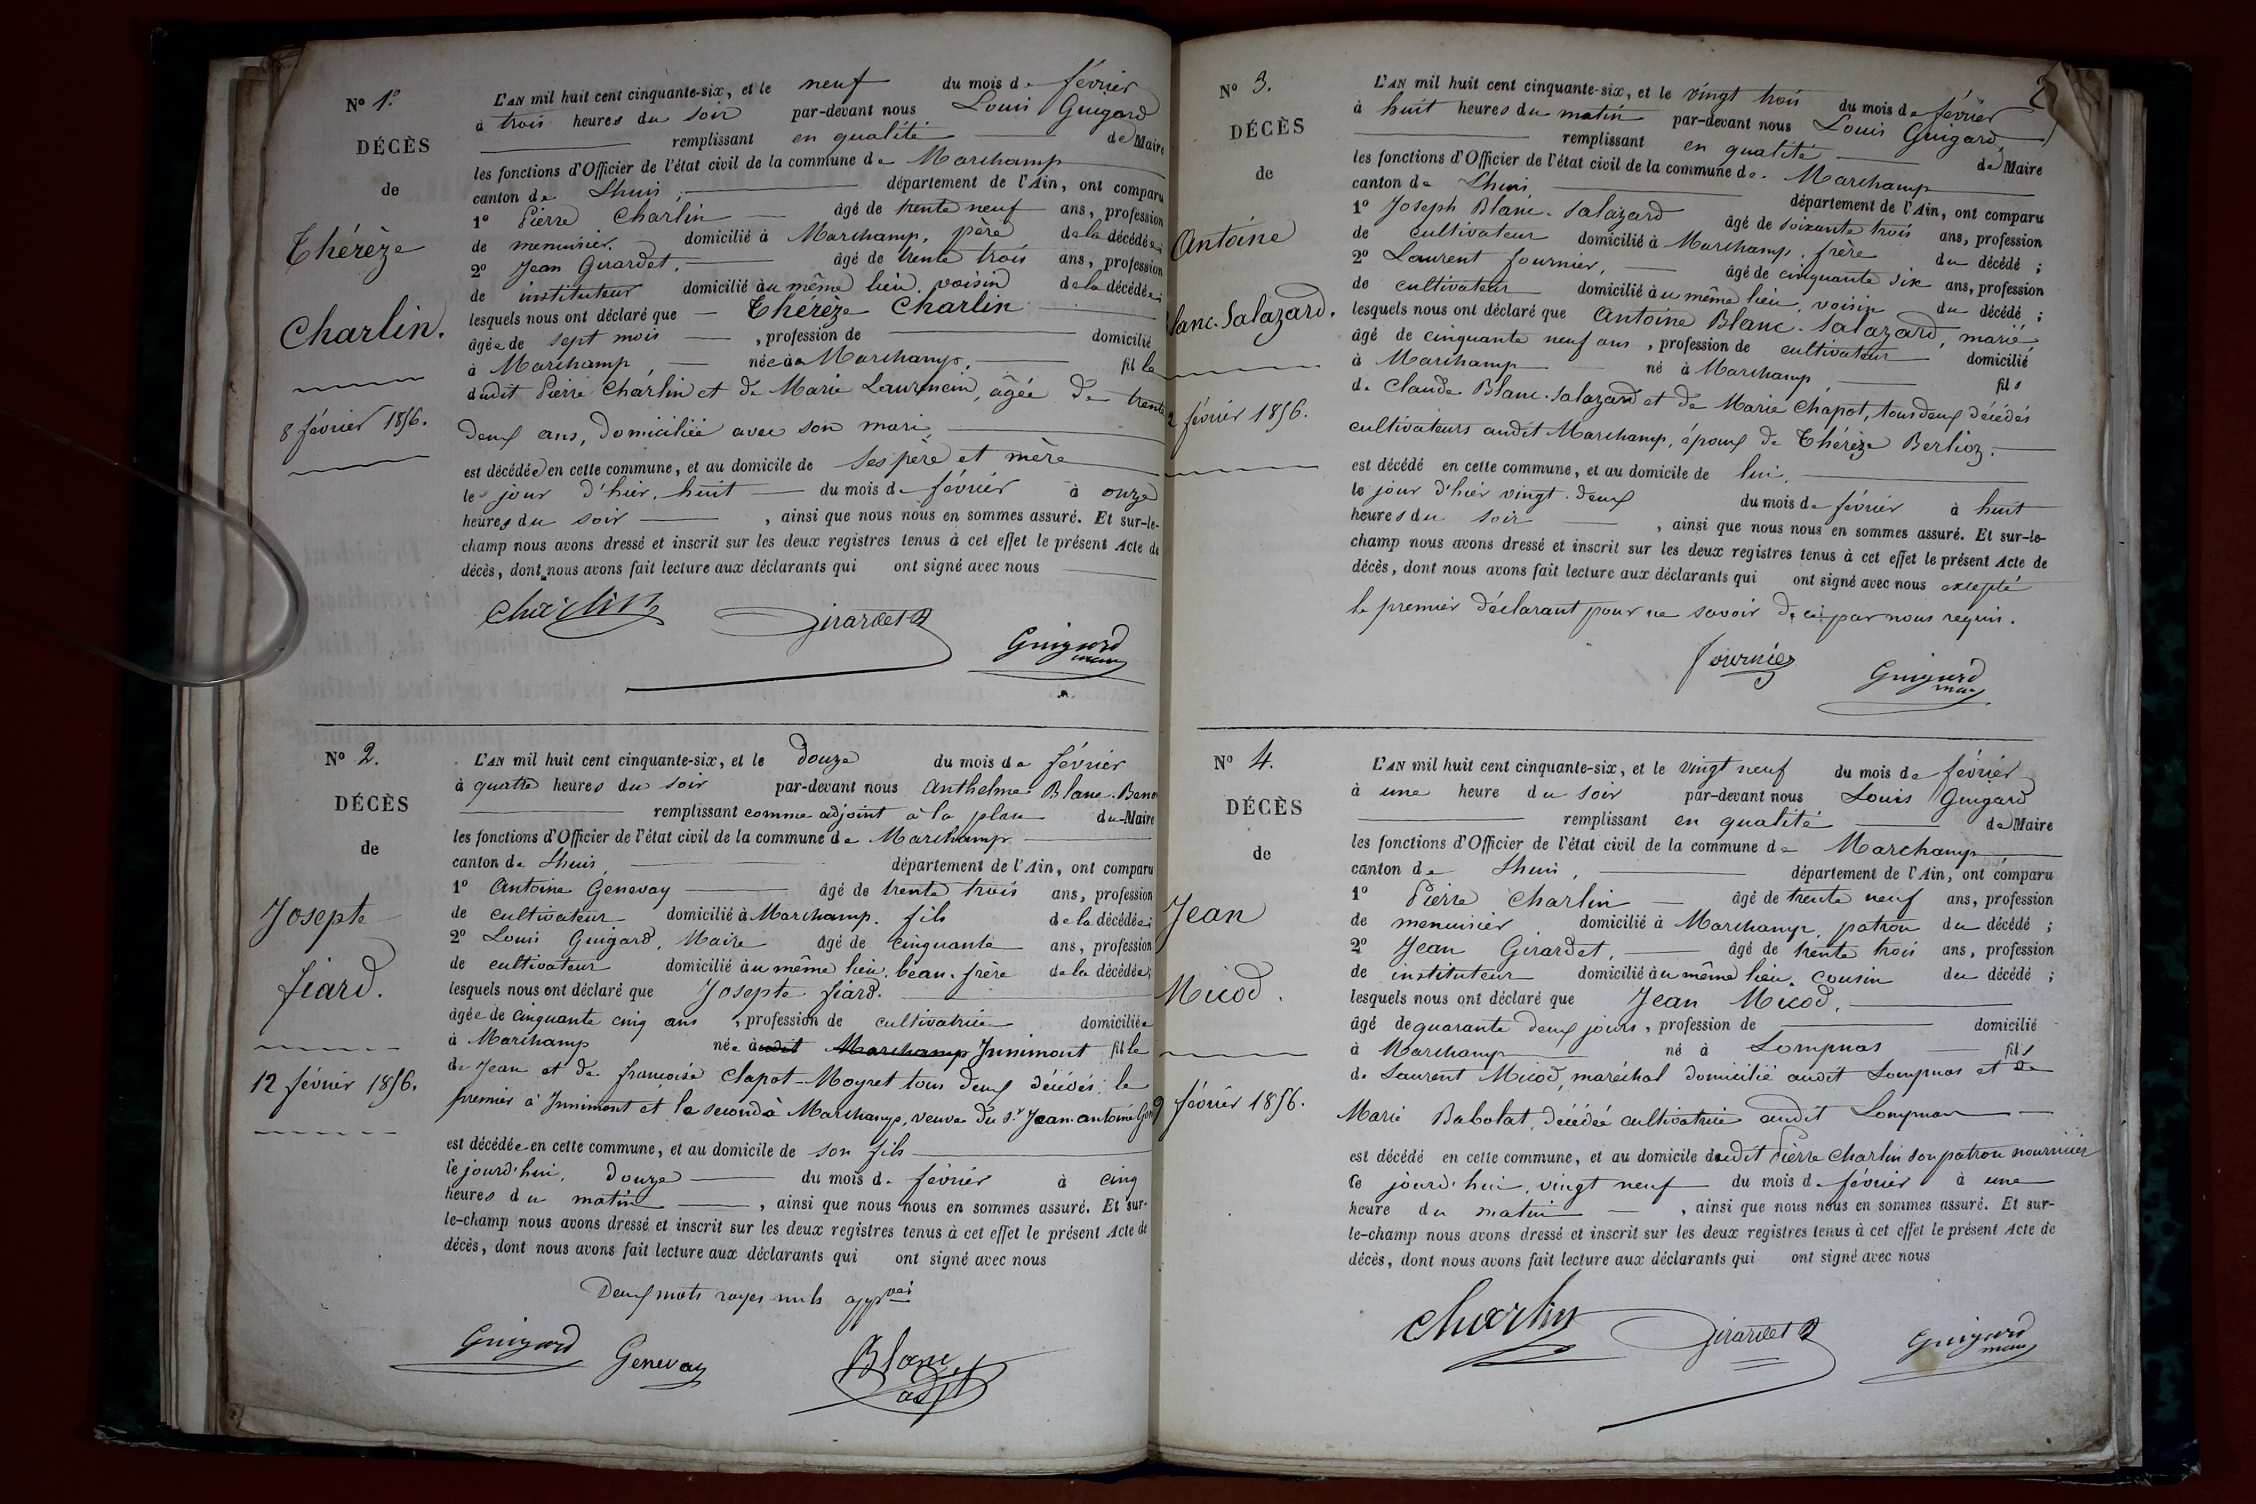 Nº 1º
DÉCÈS
de
Thérèze
Charlin.
8 février 1856.
L'AN mil huit cent cinquante-six, et le neuf du mois de février
à trois heures du soir par-devant nous Louis Guigard
remplissant en qualité de Maire
les fonctions d'Officier de l'état civil de la commune de Marchamp
canton de Lhuis, département de l'Ain, ont comparu
1º Pierre Charlin âgé de trente neuf ans, profession
de menuisier domicilié à Marchamp, père de la décédée;
2º Jean Girardet, âgé de trente trois ans, profession
de instituteur domicilié au même lieu, voisin de la décédée;
lesquels nous ont déclaré que Thérèze Charlin
âgée de sept mois, profession de domicilié
à Marchamp née à Marchamp, fille
dudit Pierre Charlin et de Marie Laurencin, âgée de trente
deux ans, domiciliée avec son mari,
est décédée en cette commune, et au domicile de ses père et mère
le jour d'hier, huit du mois de février à onze
heures du soir, ainsi que nous nous en sommes assuré. Et sur-le-
champ nous avons dressé et inscrit sur les deux registres tenus à cet effet le présent Acte de
décès, dont nous avons fait lecture aux déclarants qui ont signé avec nous
Charlin Girardet Guigard
maire
Nº 2.
DÉCÈS
de
Josepte
fiard.
12 février 1856.
L'AN mil huit cent cinquante-six, et le douze du mois de février
à quatre heures du soir par-devant nous Anthelme Blanc-Beno
remplissant comme adjoint à la place du Maire
les fonctions d'Officier de l'état civil de la commune de Marchamp
canton de Lhuis, département de l'Ain, ont comparu
1º Antoine Genevay âgé de trente trois ans, profession
de cultivateur domicilié à Marchamp, fils de la décédée;
2º Louis Guigard, Maire âgé de cinquante ans, profession
de cultivateur domicilié au même lieu, beau-frère de la décédée;
lesquels nous ont déclaré que Josepte fiard.
âgée de cinquante cinq ans, profession de cultivatrice domiciliée
à Marchamp née à udit Marchamp Innimont fille
de Jean et de françoise Clapot-Moyret tous deux décédés; le
premier à Innimont et la seconde à Marchamp, veuve du Sr Jean-antoine
est décédée en cette commune, et au domicile de son fils
ce jourd'hui, douze du mois de février à cinq
heures du matin, ainsi que nous nous en sommes assuré. Et sur-
le-champ nous avons dressé et inscrit sur les deux registres tenus à cet effet le présent Acte de
décès, dont nous avons fait lecture aux déclarants qui ont signé avec nous
Deux mots rayés nuls appvés
Guigard Genevay Blanc
adjt
2
Nº 3.
DÉCÈS
de
Antoine
lanc-Salazard.
2 février 1856.
L'AN mil huit cent cinquante-six, et le vingt trois du mois de février
à huit heures du matin par-devant nous Louis Guigard,
remplissant en qualité de Maire
les fonctions d'Officier de l'état civil de la commune de Marchamp
canton de Lhuis, département de l'Ain, ont comparu
1º Joseph Blanc-Salazard âgé de soixante trois ans, profession
de cultivateur domicilié à Marchamp, frère du décédé;
2º Laurent fournier, âgé de cinquante six ans, profession
de cultivateur domicilié au même lieu, voisin du décédé;
lesquels nous ont déclaré que Antoine Blanc-Salazard, marié,
âgé de cinquante neuf ans, profession de cultivateur domicilié
à Marchamp né à Marchamp, fils
de Claude Blanc-Salazard et de Marie Chapot, tous deux décédés
cultivateurs audit Marchamp, époux de Thérèze Berlioz.
est décédé en cette commune, et au domicile de lui,
le jour d'hier vingt-deux du mois de février à huit
heures du soir, ainsi que nous nous en sommes assuré. Et sur-le-
champ nous avons dressé et inscrit sur les deux registres tenus à cet effet le présent Acte de
décès, dont nous avons fait lecture aux déclarants qui ont signé avec nous excepté
le premier déclarant pour ne savoir de ce par nous requis.
fournier Guigard
maire
Nº 4.
DÉCÈS
de
Jean
Micod.
9 février 1856.
L'AN mil huit cent cinquante-six, et le vingt neuf du mois de février
à une heure du soir par-devant nous Louis Guigard
remplissant en qualité de Maire
les fonctions d'Officier de l'état civil de la commune de Marchamp
canton de Lhuis, département de l'Ain, ont comparu
1º Pierre Charlin âgé de trente neuf ans, profession
de menuisier domicilié à Marchamp, patron du décédé;
2º Jean Girardet, âgé de trente trois ans, profession
de instituteur domicilié au même lieu, cousin du décédé;
lesquels nous ont déclaré que Jean Micod,
âgé de quarante deux jours, profession de domicilié
à Marchamp né à Lompnas fils
de Laurent Micod, maréchal domicilié audit Lompnas et de
Marie Babolat, décédée cultivatrice audit Lompnas
est décédé en cette commune, et au domicile dudit Pierre Charlin son patron nourricier
ce jourd'hui, vingt neuf du mois de février à une
heure du matin, ainsi que nous nous en sommes assuré. Et sur-
le-champ nous avons dressé et inscrit sur les deux registres tenus à cet effet le présent Acte de
décès, dont nous avons fait lecture aux déclarants qui ont signé avec nous
Charlin Girardet Guigard
maire